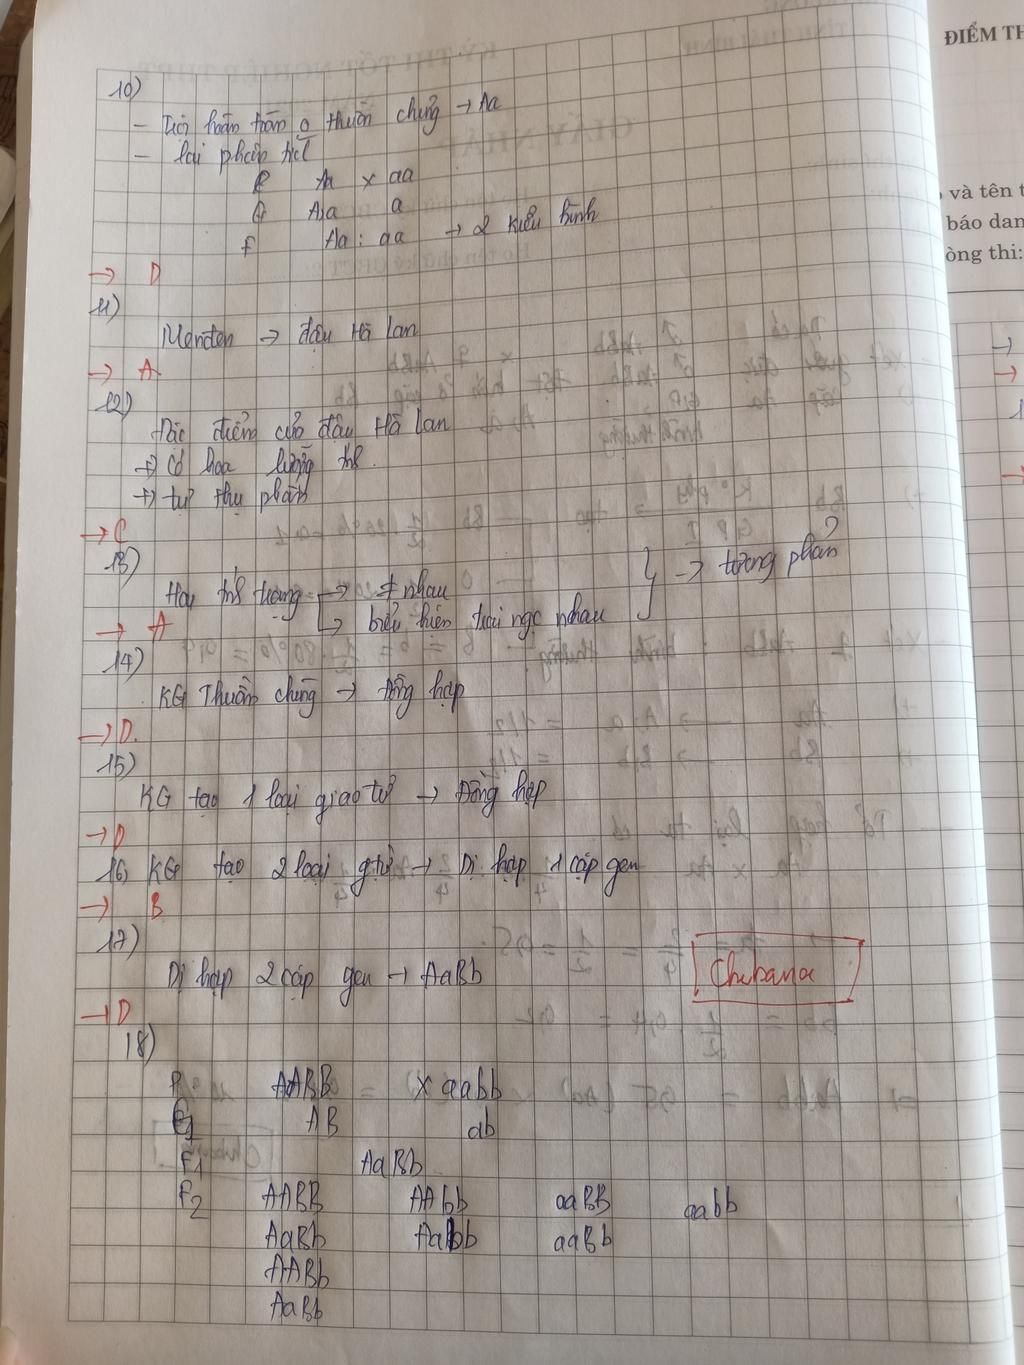 10)
- Trội hoàn toàn o thuần chủng → Aa
- lai phân tích
P Aa x aa
G A;a a
F Aa : aa → 2 kiểu hình
→ D
11)
Menđen → đậu Hà lan
→ A
12)
Đặc điểm của đậu Hà lan
→ Có hoa lưỡng tính.
→ tự thụ phấn
→ C
13)
Hai tính trạng → ≠ nhau
→ biểu hiện trái ngc nhau
→ tương phản
→ A
14)
KG Thuần chủng → đồng hợp
→ D.
15)
KG tạo 1 loại giao tử → Đồng hợp
→ D
16) KG tạo 2 loại gtử → Dị hợp 1 cặp gen
→ B
17)
Dị hợp 2 cặp gen → AaBb
Chibana
→ D
18)
P AABB x aabb
G AB ab
F1 AaBb
F2 AABB AAbb aaBB aabb
AaBb Aabb aaBb
AABb
AaBb
ĐIỂM TH
và tên t
báo dan
òng thi: